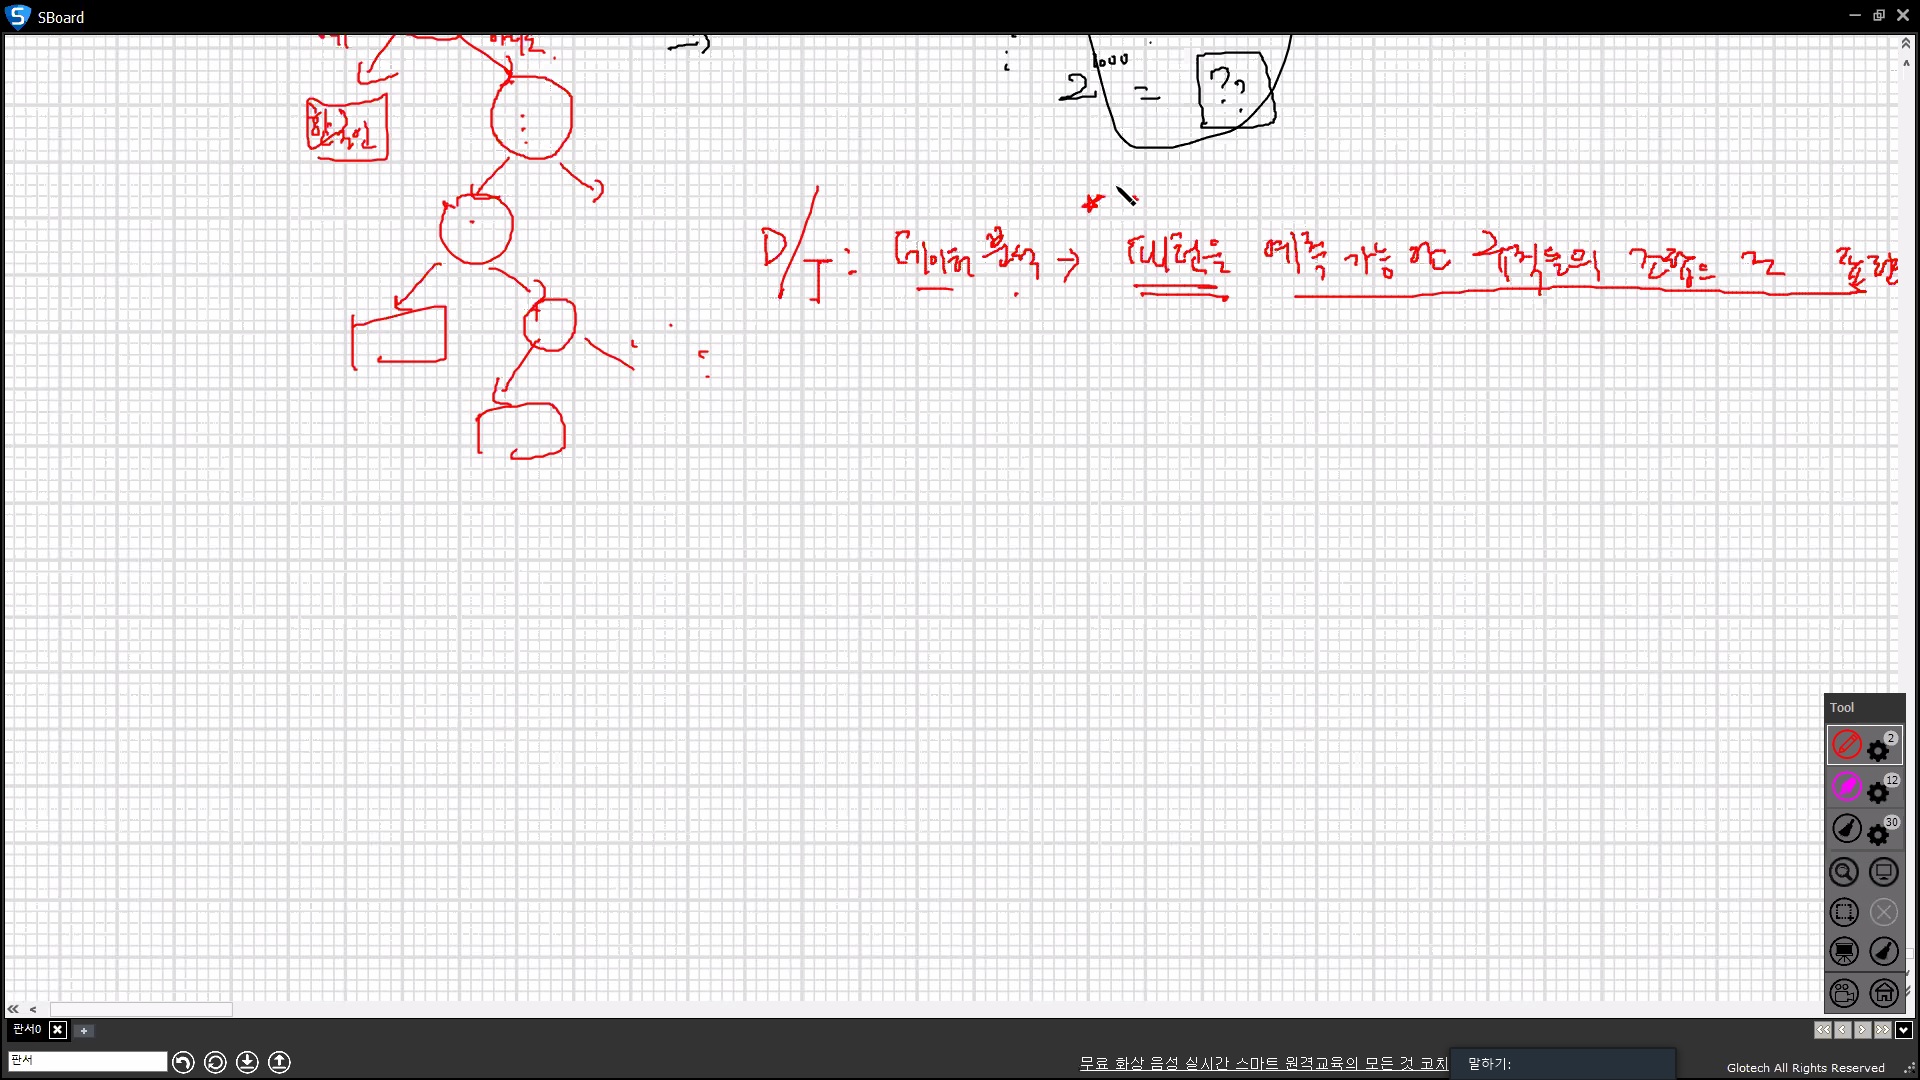 SBoard
2^1000 = ??
D/T : 데이터 분석 → 패턴을 예측 가능한 규칙들의 조합으로
Tool
2
12
30
판서0
판서
무료 화상 음성 실시간 스마트 원격교육의 모든 것 코치
말하기:
Glotech All Rights Reserved